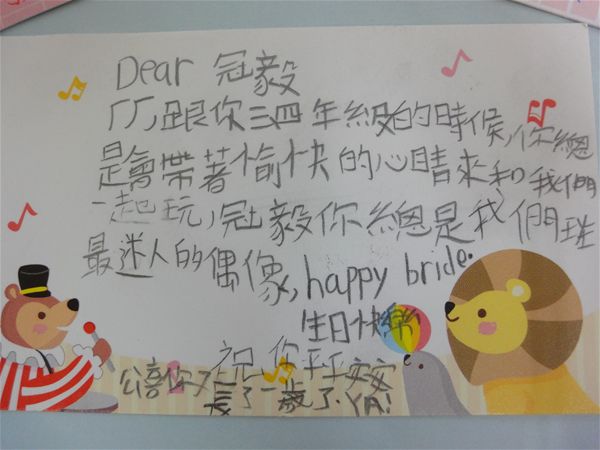 Dear 冠毅
厂厂,跟你三四年級的時候,你總
是會帶著愉快的心晴來和我們
一起玩,冠毅你總是我們班
最迷人的偶像, happy bride.
生日快樂
祝你平平安安
公喜你又
長了一歲了.